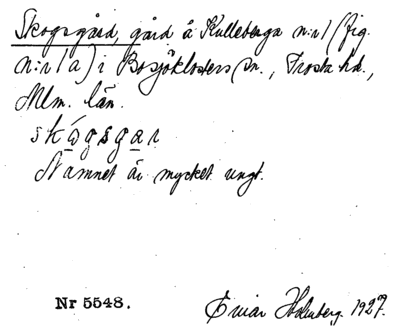 Skogsgård, gård å Kulleberga n:r 1 (fig.
n:r 1a) i Bosjöklosters sn., Frosta hd.,
Mlm. län.
skogsgar
Namnet är mycket ungt.
Nr 5548.
Einar Holmberg. 1927.